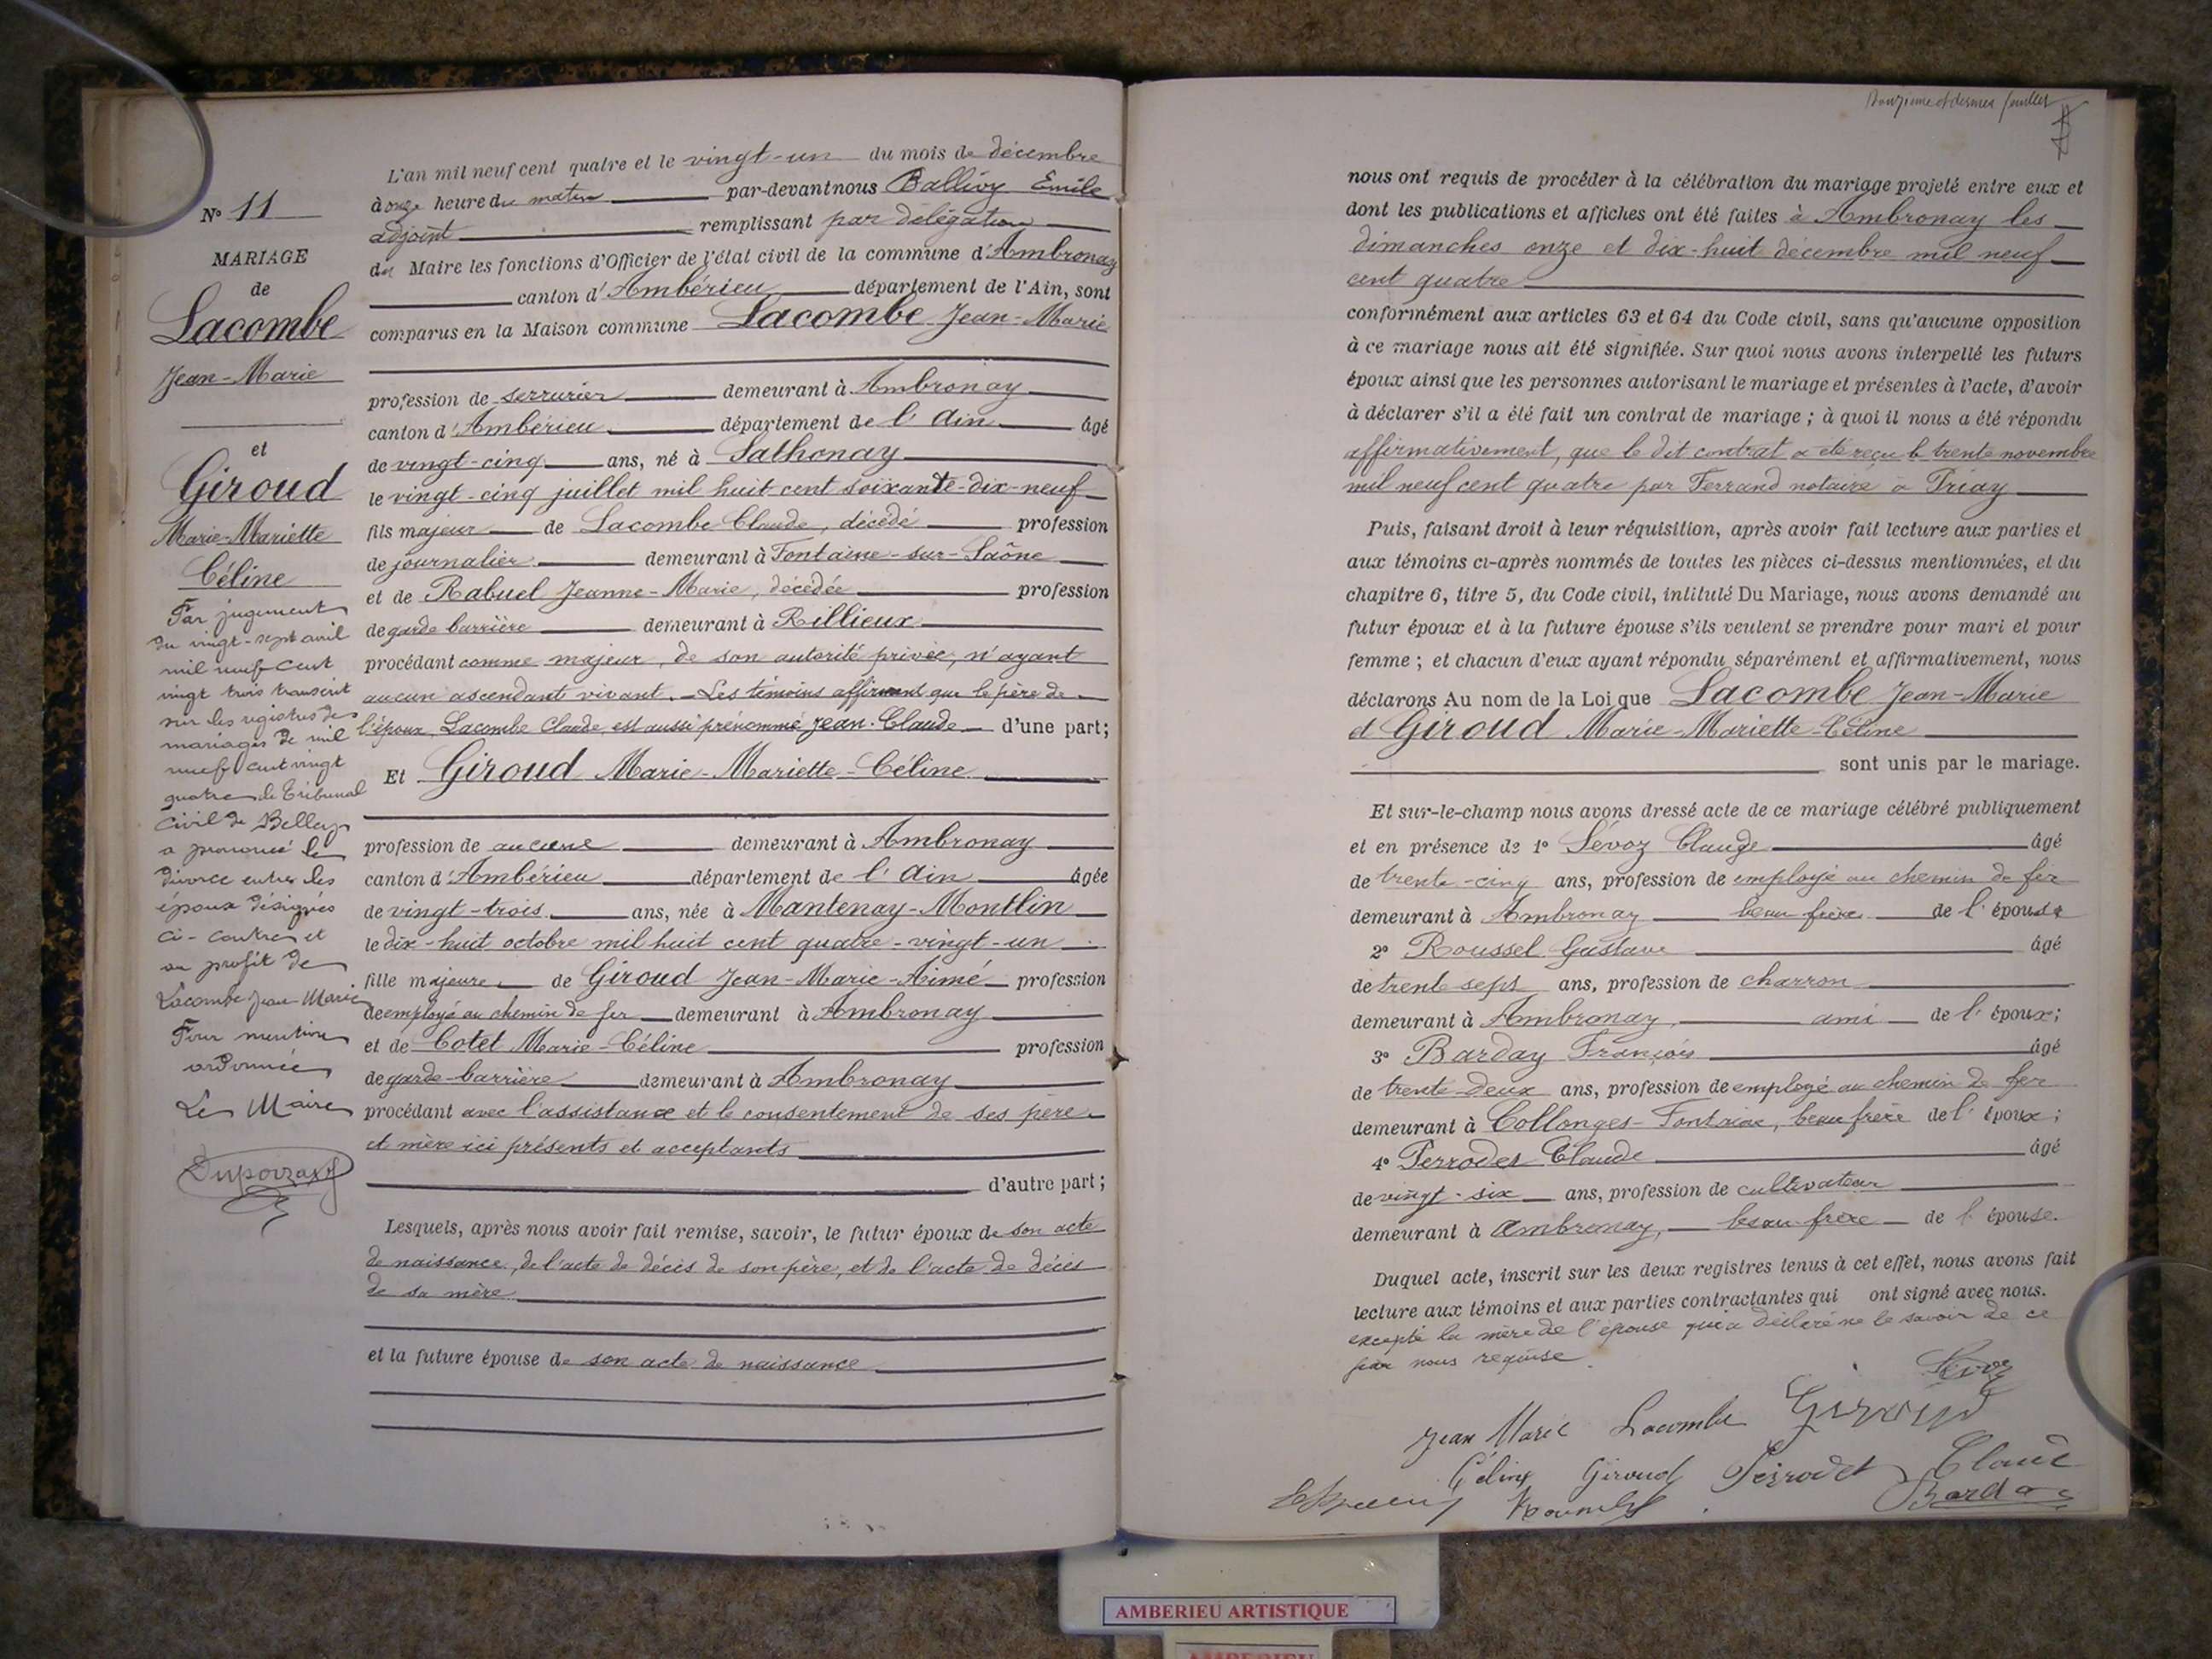 N° 11
MARIAGE
de
Lacombe
Jean-Marie
et
Giroud
Marie-Mariette
Céline
Par jugement
du vingt-sept avril
mil neuf cent
vingt trois transcrit
sur les registres de
mariages de mil
neuf cent vingt
quatre le Tribunal
civil de Belley
a prononcé le
divorce entre les
époux désignés
ci-contre et
au profit de
Lacombe Jean Marie
Pour mention
ordonnée
Le Maire
L'an mil neuf cent quatre et le vingt-un du mois de décembre
à onze heure du matin par-devant nous Ballivy Emile
adjoint remplissant par délégation
du Maire les fonctions d'Officier de l'état civil de la commune d'Ambronay
canton d'Ambérieu département de l'Ain, sont
comparus en la Maison commune Lacombe Jean-Marie
profession de serrurier demeurant à Ambronay
canton d'Ambérieu département de l'Ain âgé
de vingt-cinq ans, né à Sathonay
le vingt-cinq juillet mil huit cent soixante-dix-neuf
fils majeur de Lacombe Claude, décédé profession
de journalier demeurant à Fontaine-sur-Saône
et de Rabuel Jeanne-Marie, décédée profession
de garde barrière demeurant à Rillieux
procédant comme majeur, de son autorité privée, n'ayant
aucun ascendant vivant. - Les témoins affirment que le père de
l'époux Lacombe Claude est aussi prénommé Jean-Claude d'une part;
Et Giroud Marie-Mariette-Céline
profession de aucune demeurant à Ambronay
canton d'Ambérieu département de l'Ain âgée
de vingt-trois ans, née à Mantenay-Montlin
le dix-huit octobre mil huit cent quatre-vingt-un
fille majeure de Giroud Jean-Marie-Aimé profession
de employé au chemin de fer demeurant à Ambronay
et de Cotet Marie-Céline profession
de garde-barrière demeurant à Ambronay
procédant avec l'assistance et le consentement de ses père
et mère ici présents et acceptants
d'autre part;
Lesquels, après nous avoir fait remise, savoir, le futur époux de son acte
de naissance, de l'acte de décès de son père, et de l'acte de décès
de sa mère
et la future épouse de son acte de naissance
Douzième et dernier feuillet
nous ont requis de procéder à la célébration du mariage projeté entre eux et
dont les publications et affiches ont été faites à Ambronay les
dimanches onze et dix-huit décembre mil neuf
cent quatre
conformément aux articles 63 et 64 du Code civil, sans qu'aucune opposition
à ce mariage nous ait été signifiée. Sur quoi nous avons interpellé les futurs
époux ainsi que les personnes autorisant le mariage et présentes à l'acte, d'avoir
à déclarer s'il a été fait un contrat de mariage; à quoi il nous a été répondu
affirmativement, que le dit contrat a été reçu le trente novembre
mil neuf cent quatre par Ferrand notaire à Priay
Puis, faisant droit à leur réquisition, après avoir fait lecture aux parties et
aux témoins ci-après nommés de toutes les pièces ci-dessus mentionnées, et du
chapitre 6, titre 5, du Code civil, intitulé Du Mariage, nous avons demandé au
futur époux et à la future épouse s'ils veulent se prendre pour mari et pour
femme; et chacun d'eux ayant répondu séparément et affirmativement, nous
déclarons Au nom de la Loi que Lacombe Jean-Marie
et Giroud Marie-Mariette-Céline
sont unis par le mariage.
Et sur-le-champ nous avons dressé acte de ce mariage célébré publiquement
et en présence de 1° Sévoz Claude âgé
de trente-cinq ans, profession de employé au chemin de fer
demeurant à Ambronay beau frère de l'épouse
2° Roussel Gustave âgé
de trente sept ans, profession de charron
demeurant à Ambronay, ami de l'époux;
3° Barday François âgé
de trente-deux ans, profession de employé au chemin de fer
demeurant à Collonges-Fontaine, beau frère de l'époux;
4° Perrodet Claude âgé
de vingt-six ans, profession de cultivateur
demeurant à Ambronay, beau-frère de l'épouse.
Duquel acte, inscrit sur les deux registres tenus à cet effet, nous avons fait
lecture aux témoins et aux parties contractantes qui ont signé avec nous.
excepté la mère de l'épouse qui a déclaré ne le savoir de ce
par nous requise.
Sévoz
Jean Marie Lacombe Giroud
Céline Giroud Perrodet Claude
Barday
AMBERIEU ARTISTIQUE
AMBERIEU